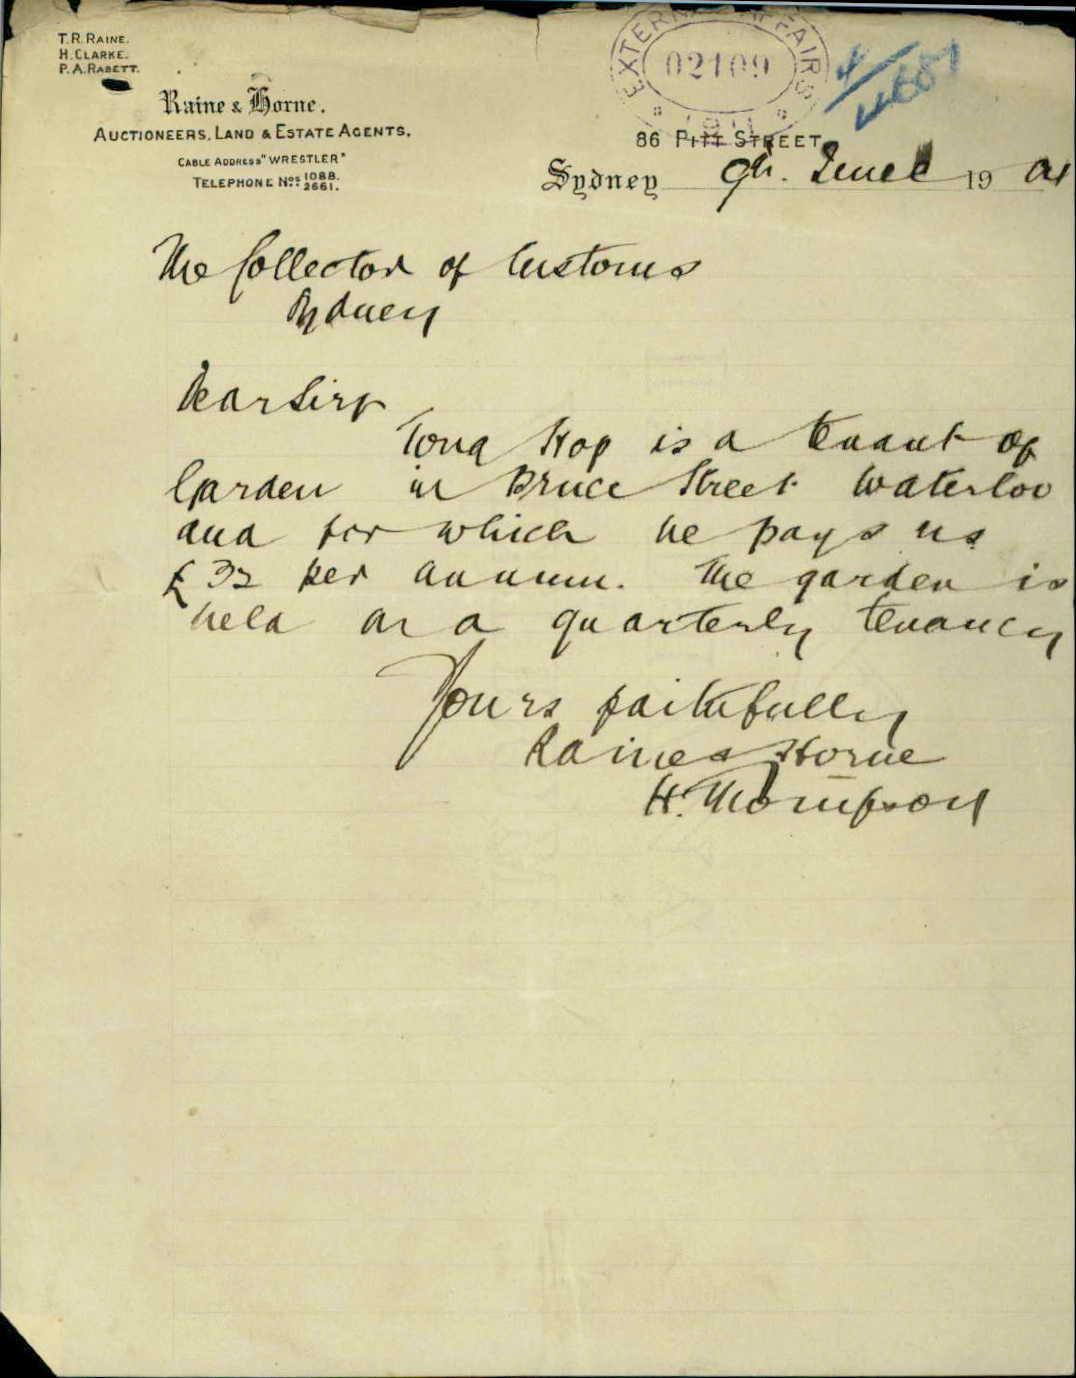 T.R. RAINE.
H. CLARKE.
P.A. RABETT.
Raine & Horne.
AUCTIONEERS, LAND & ESTATE AGENTS.
CABLE ADDRESS "WRESTLER"
TELEPHONE Nos 1088. 2661.
EXTERNAL AFFAIRS
02109
86 PITT STREET
Sydney 9th. June 19 01
The Collector of Customs
Sydney
Dear Sir
Hop is a tenant of
Garden in Bruce Street Waterloo
and for which he pays us
£32 per annum. The garden is
held on a quarterly tenancy
Yours faithfully
Raine & Horne
H. Thompson